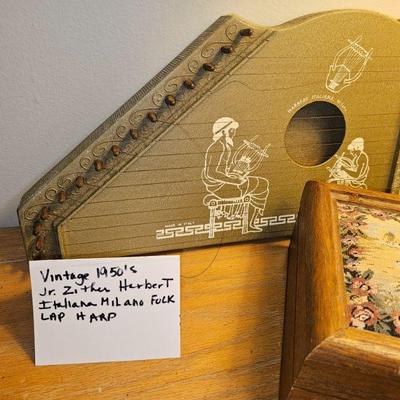 HARBERT ITALIANA MILANO
MADE IN ITALY
Vintage 1950's
Jr. Zither Harbert
Italiana Milano FOLK
LAP HARP